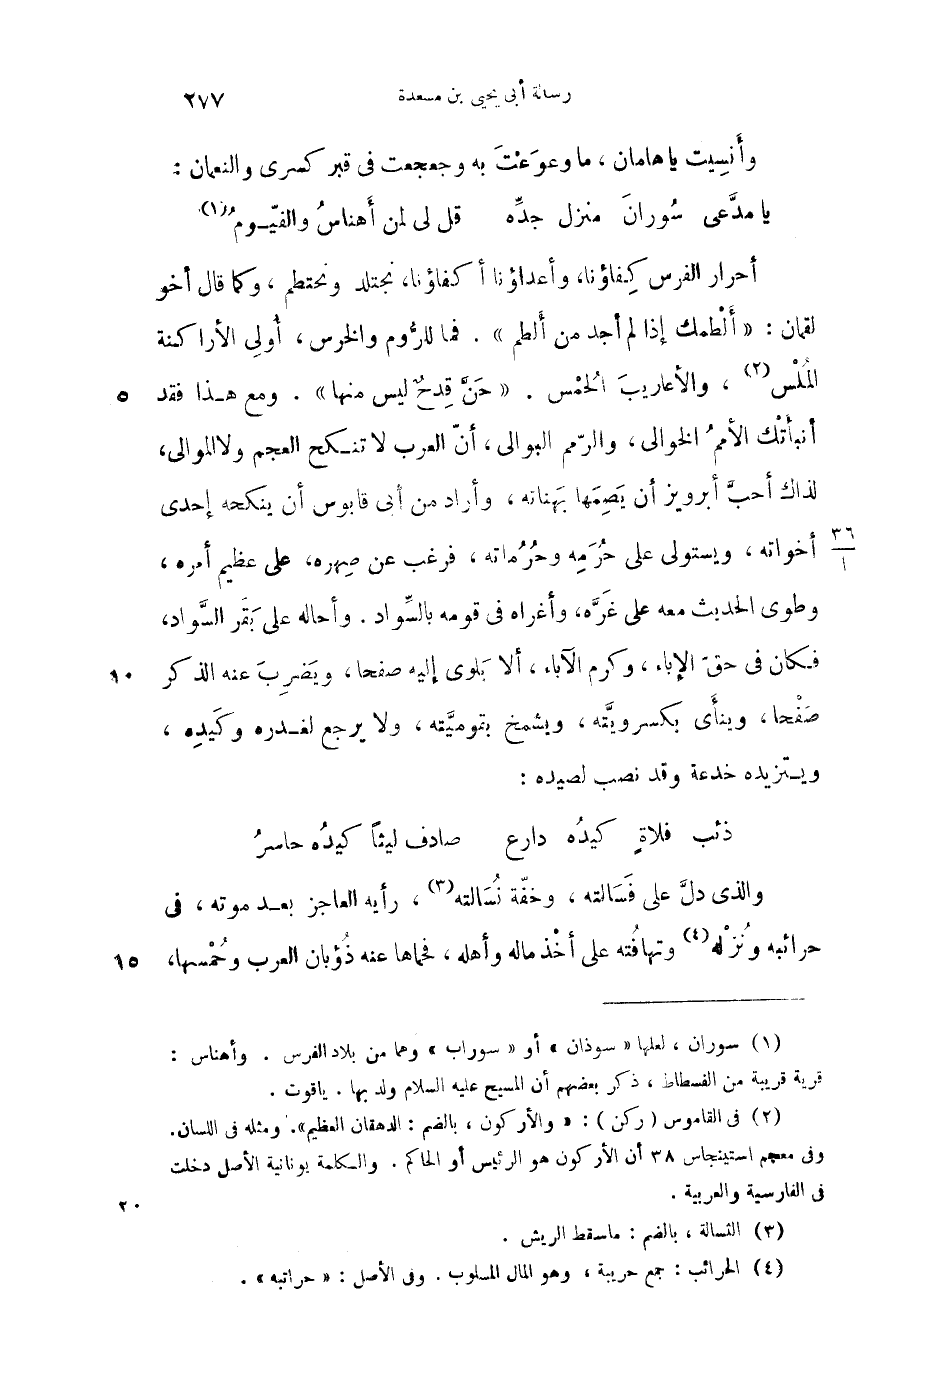 رسالة أبى يحيى بن مسعدة ٢٧٧
وأُنسِيت يا هامان ، ما وعوَعْتَ به وجعجعت فى قبر كسرى والنعمان :
يا مدَّعى سُورانَ منزل جدِّه قل لى لمن أَهناسُ والفيّـوم(١)
أحرار الفرس كِفاؤنا، وأعداؤنا أكفاؤنا، نجتلد ونحتطم ، وكما قال أخو
لقمان : « ألْطمك إذا لم أجد من ألطم » . فما للرُّوم والخرس ، أولى الأراكنة
المُلْس(٢) ، والأعاريبَ الحُمْس . « حَنَّ قِدحٌ ليس منها » . ومع هـذا فقد ٥
أنبأتْك الأممُ الخوالى ، والرّمم البوالى ، أنّ العرب لا تنـكح العجم ولا الموالى ،
لذاك أحبَّ أبرويز أن يَصِمَها بهَناته ، وأراد من أبى قابوس أن ينكحه إحدى
أخواته ، ويستولى على حُرَمِه وحُرُماته ، فرغب عن صِهره، على عظيم أمره ، ٣٦/١
وطوى الحديث معه على غَرَّه، وأغراه فى قومه بالسِّواد . وأحاله على بَقَر السَّواد،
فكان فى حقّ الإباء ، وكرم الآباء ، ألا يَلوى إليه صفحا ، ويَضرِبَ عنه الذكر ١٠
صَفْحا ، وينأَى بكسرويَّته ، ويشمخ بقوميَّته ، ولا يرجع لغـدره وكَيدِه ،
ويـتزيده خدعة وقد نصب لصيده :
ذئب فلاةٍ كيدُه دارع صادف ليثاً كيدُه حاسرُ
والذى دلَّ على فَسَالته ، وخفّة نُسَالته(٣) ، رأيه العاجز بعـد موته ، فى
حرائبه ونُزْله(٤) وتهافُته على أخْذ ماله وأهله ، فحماها عنه ذُؤبان العرب وحُمْسها، ١٥
(١) سوران ، لعلها « سوذان » أو « سوراب » وهما من بلاد الفرس . وأهناس :
قرية قريبة من الفسطاط ، ذكر بعضهم أن المسيح عليه السلام ولد بها . ياقوت .
(٢) فى القاموس ( ركن ) : « والأركون ، بالضم : الدهقان العظيم». ومثله فى اللسان.
وفى معجم استينجاس ٣٨ أن الأركون هو الرئيس أو الحاكم . والـكلمة يونانية الأصل دخلت
فى الفارسية والعربية . ٢٠
(٣) النسالة ، بالضم : ماسقط الريش .
(٤) الحرائب : جمع حريبة ، وهو المال المسلوب . وفى الأصل : « حراتبه » .